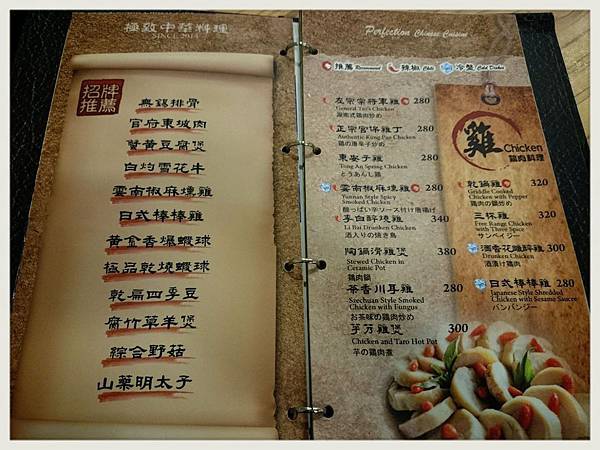 極致中華料理
SINCE 2014
招牌
推薦
無錫排骨
官府東坡肉
蟹黃豆腐煲
白灼雪花牛
雲南椒麻燻雞
日式棒棒雞
黃金香爆蝦球
極品乾燒蝦球
乾扁四季豆
腐竹草羊煲
綜合野菇
山藥明太子
Perfection Chinese Cuisine
推薦 Recommend 辣椒 Chili 冷盤 Cold Dishes
左宗棠將軍雞 280
General Tso's Chicken
湖南式鶏肉炒め
正宗宮保雞丁 280
Authentic Kung Pao Chicken
鶏の唐辛子炒め
東安子雞 280
Tong An Spring Chicken
とうあんし鶏
雲南椒麻燻雞 280
Yunnan Style Spicy
Smoked Chicken
酸っぱい辛ソース付け唐揚げ
李白醉燒雞 340
Li Bai Drunken Chicken
酒入りの焼き鳥
陶鍋滑雞煲 380
Stewed Chicken in
Ceramic Pot
鶏肉鍋
茶香川耳雞 280
Szechuan Style Smoked
Chicken with Fungus
お茶味の鶏肉炒め
芋艿雞煲 300
Chicken and Taro Hot Pot
芋の鶏肉煮
雞 Chicken
鶏肉料理
乾鍋雞 320
Griddle Cooked
Chicken with Pepper
鶏肉の鍋炒め
三杯雞 320
Free Range Chicken
with Three Spice
サンベイジー
酒香花雕醉雞 300
Drunken Chicken
酒漬け鶏肉
日式棒棒雞 280
Japanese Style Shredded
Chicken with Sesame Saucee
バンバンジー